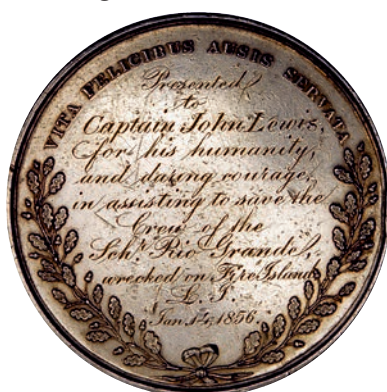 VITA FELICIBUS AUSIS SERVATA
Presented
to
Captain John Lewis,
for his humanity,
and daring courage,
in assisting to save the
Crew of the
Schr. Rio Grande,
wrecked on Fire Island
L. I.
Jan. 14, 1856